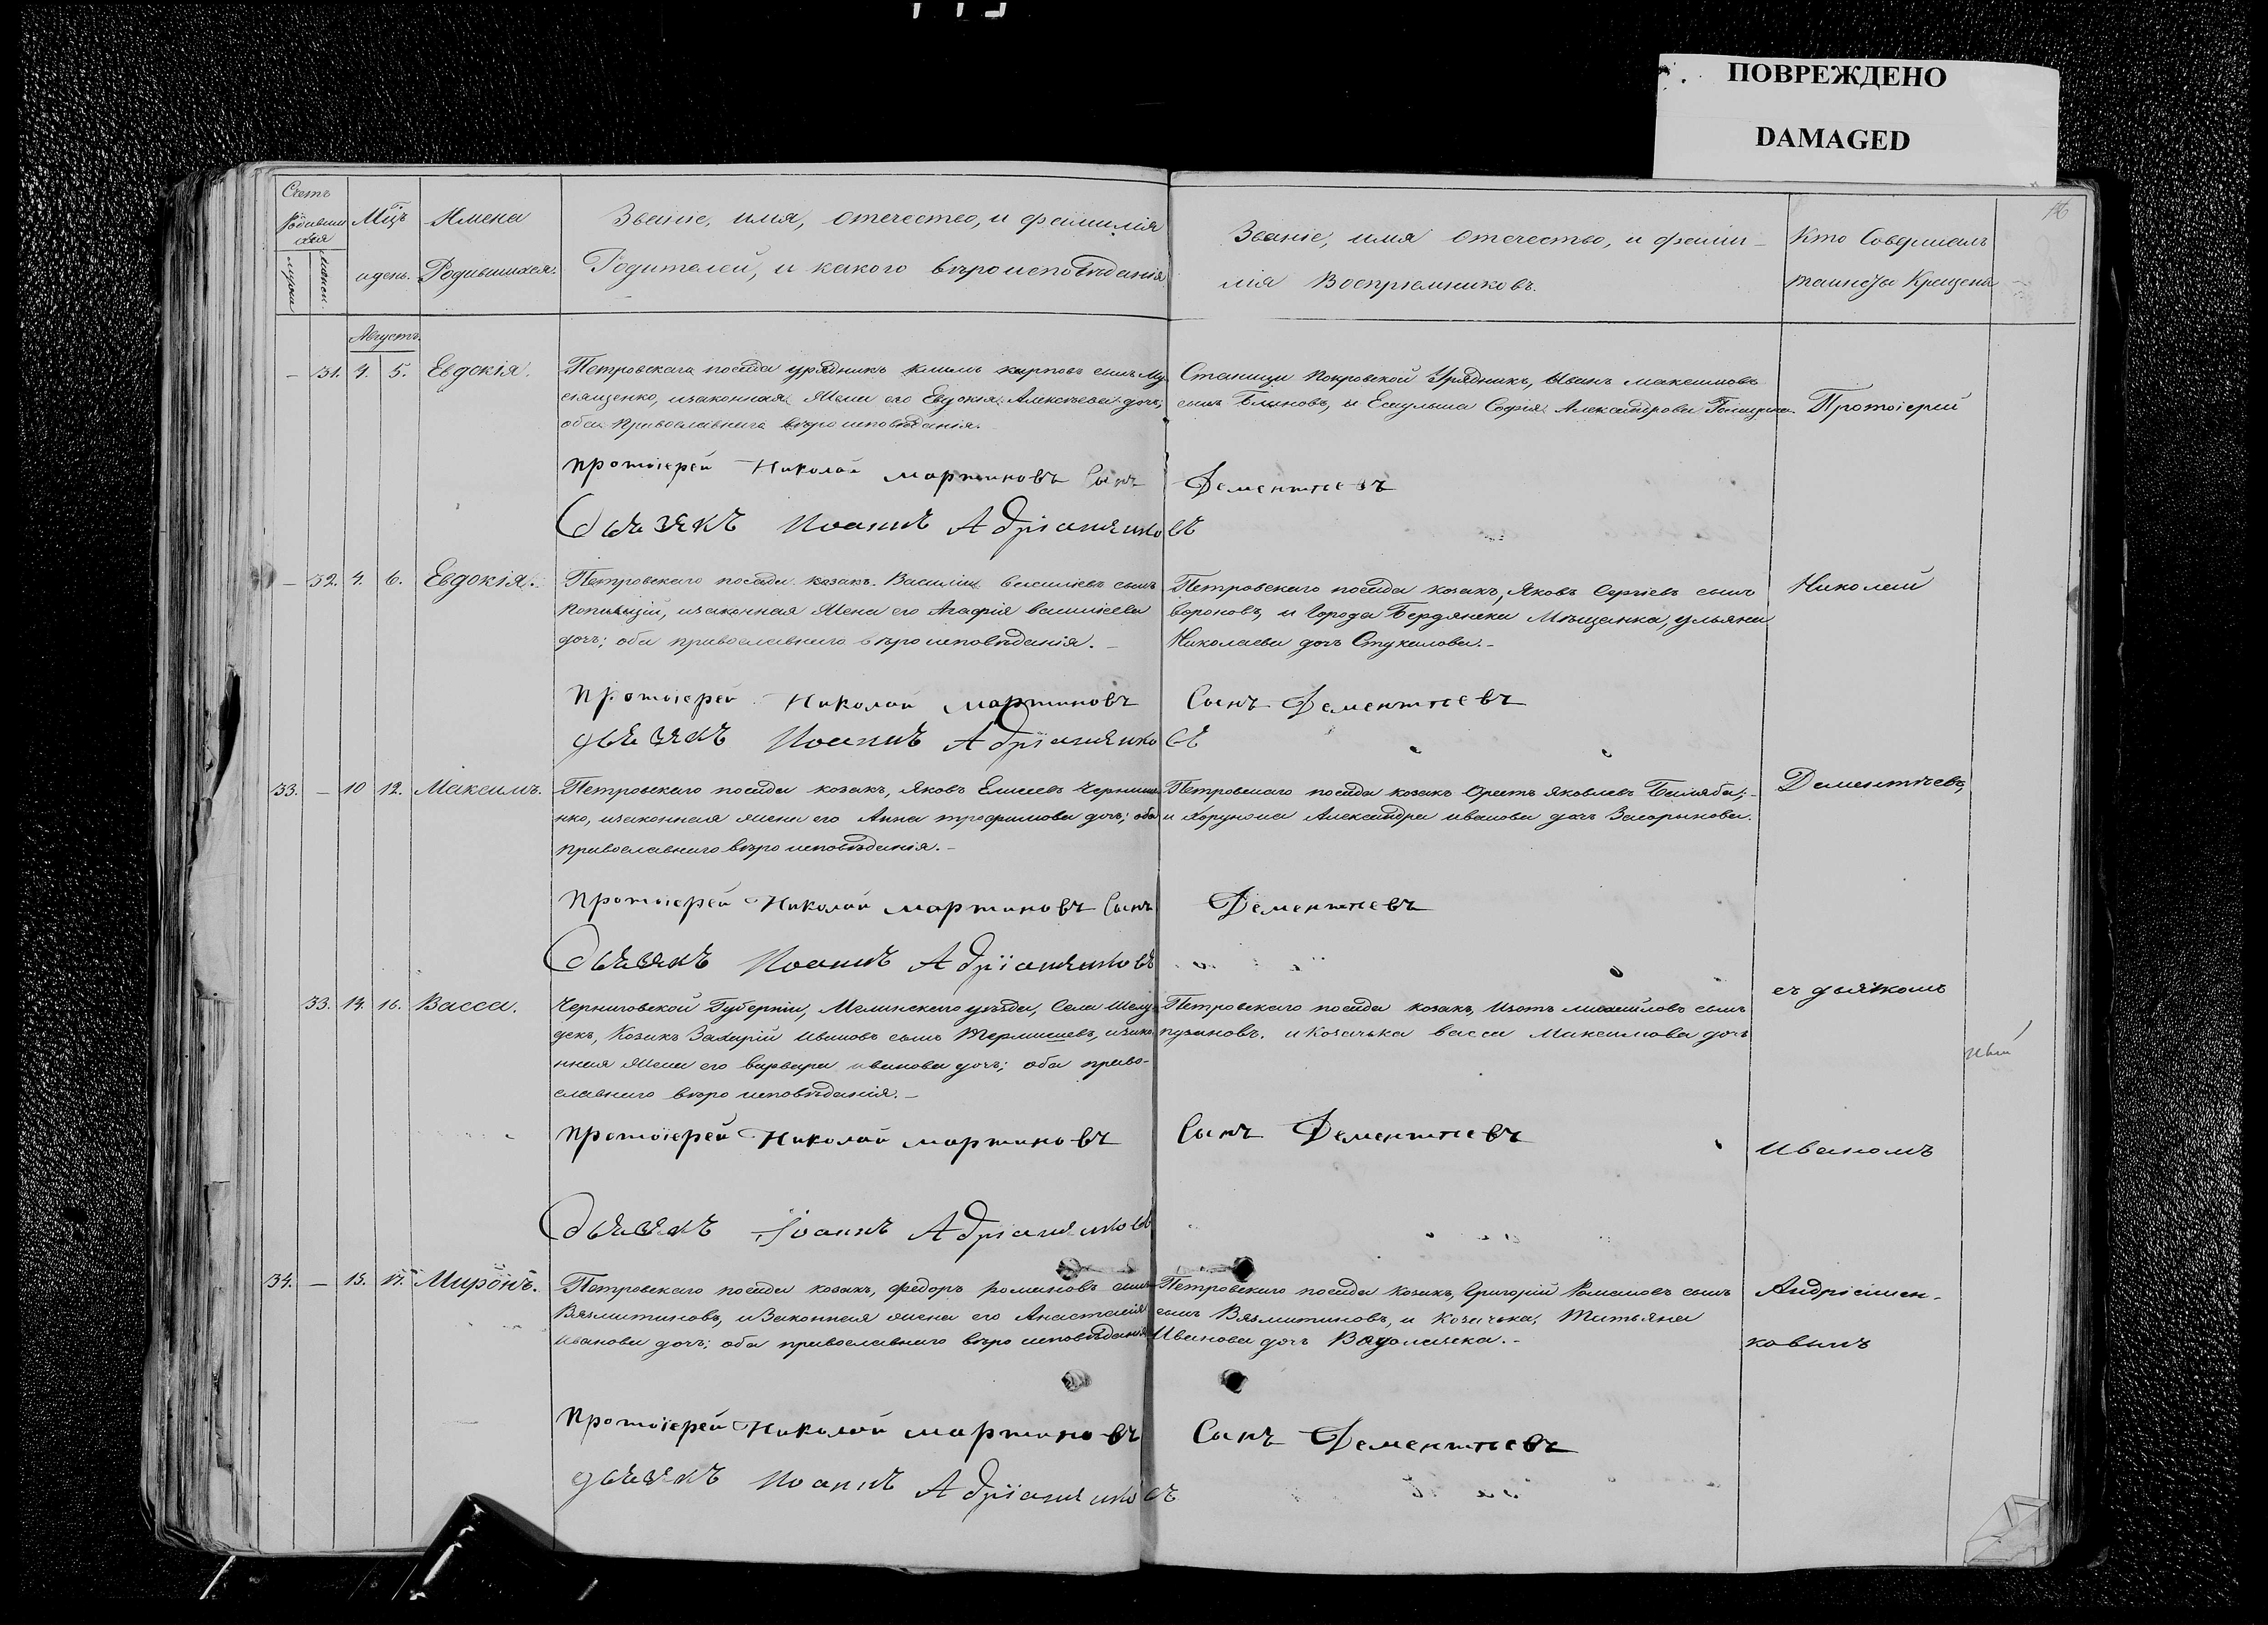 ПОВРЕЖДЕНО
DAMAGED
Счетъ родившихся
мужеска
женска
Мцъ и день.
Имена Родившихся.
Званіе, имя, отечество, и фамилія
Родителей, и какого вѣроисповѣданія
Званіе, имя отечество, и фами-
лія Воспріемниковъ.
Кто Совершалъ
таинство Крещенія
Августъ.
— 31. 4. 5. Евдокія.
Петровскаго посада урядникъ Климъ Карповъ сынъ Му-
сіященко, изаконная Жена его Евдокія Алексѣева дочь;
оба Православнаго вѣроисповѣданія.
Станицы Покровской Урядникъ, Иванъ Максимовъ
сынъ Блиновъ, и Есаульша Софія Александрова
Протоіерей
протоіерей Николай мартиновъ Сынъ Дементіевъ
дьячекъ Иоаннъ Адріаненковъ
— 32. 4. 6. Евдокія.
Петровскаго посада козакъ Василій Василіевъ сынъ
изаконная Жена его Агафія Василіева
дочь; оба православнаго вѣроисповѣданія. —
Петровскаго посада козакъ, Яковъ Сергіевъ сынъ
Вороновъ, и Города Бердянска Мѣщанка, ульяна
Николаева дочь Стукалова. —
Николай
протоіерей Николай мартиновъ Сынъ Дементіевъ
дьячекъ Иоаннъ Адріаненковъ
33. — 10 12. Максимъ.
Петровскаго посада козакъ, Яковъ Елисеевъ Черныше-
нко, изаконная жена его Анна трофимова дочь; оба
православнаго вѣроисповѣданія. —
Петровскаго посада козакъ Орестъ Яковлевъ Баляба; —
и Хорунжша Александра иванова дочь
Дементіевъ,
протоіерей Николай мартиновъ Сынъ Дементіевъ
дьячекъ Иоаннъ Адріаненковъ
33. 14. 16. Васса.
Черниговской Губерніи, уѣзда, Села
Козакъ Захарій Ивановъ сынъ изако-
нная Жена его варвара иванова дочь; оба право-
славнаго вѣроисповѣданія. —
Петровскаго посада козакъ, Изотъ михайловъ сынъ
пузановъ. и Козачька васса Максимова дочь
съ дьячкомъ
протоіерей Николай мартиновъ Сынъ Дементіевъ
Иваномъ
дьячекъ Іоаннъ Адріаненковъ
34. — 15. 17. Миронъ.
Петровскаго посада козакъ, федоръ романовъ сынъ
Вязмитиновъ, и Законная жена его Анастасія
иванова дочь; оба православнаго вѣроисповѣданія
Петровскаго посада козакъ, Григорій Романовъ сынъ
сынъ Вязмитиновъ, и козачька, Татьяна
Иванова дочь
Андріанен-
ковымъ
протоіерей Николай мартиновъ Сынъ Дементіевъ
дьячекъ Иоаннъ Адріаненковъ